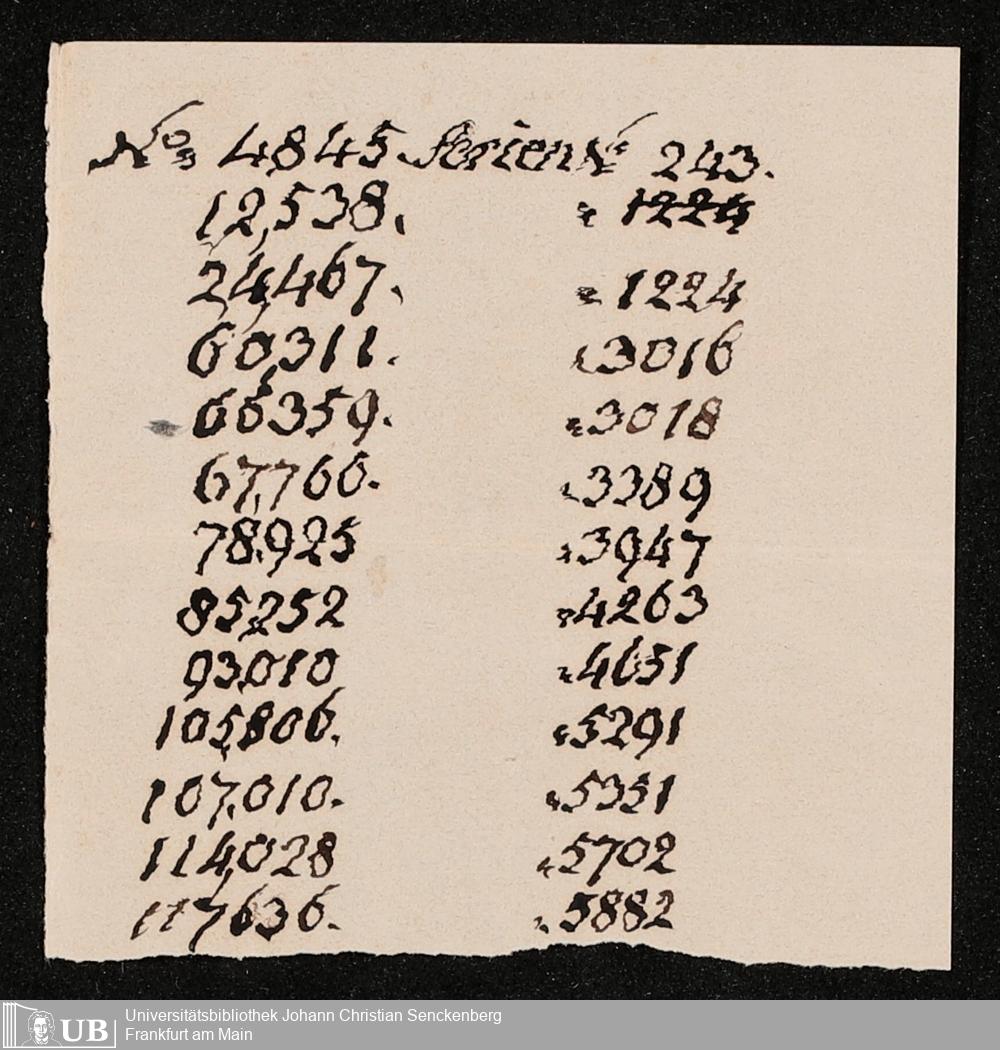 No 4845 Serien No 243.
12,538. " 1224
24,467. " 1224
60,311. " 3016
66359. " 3018
67,766. " 3389
78,925 " 3947
85,252 " 4263
93,010 " 4651
105,806. " 5291
107,010. " 5351
114,028 " 5702
117636. " 5882
UB
Universitätsbibliothek Johann Christian Senckenberg
Frankfurt am Main